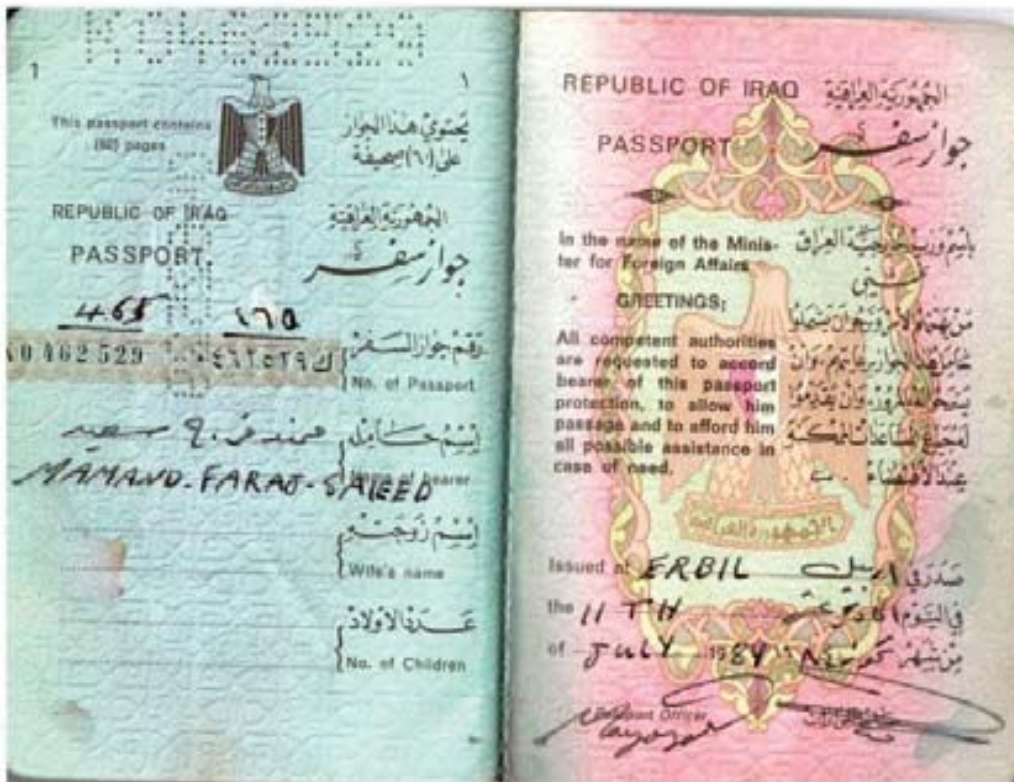 1
١
This passport contains
(60) pages
يحتوي هذا الجواز
على (٦٠) صحيفة
REPUBLIC OF IRAQ
الجمهورية العراقية
PASSPORT.
جواز سفر
465
٤٦٥
رقم جواز السفر
0462529
ك ٤٦٢٥٢٩
No. of Passport
اسم حامله
سعيد
MAMAND-FARAJ-SAIEED
bearer
اسم زوجته
Wife's name
عدد الأولاد
No. of Children
REPUBLIC OF IRAQ
الجمهورية العراقية
PASSPORT
جواز سفر
In the name of the Minis-
ter for Foreign Affairs
باسم وزير خارجية العراق
GREETINGS;
All competent authorities
are requested to accord
bearer of this passport
protection, to allow him
passage and to afford him
all possible assistance in
case of need.
الجمهورية العراقية
Issued at ERBIL
صدر في اربيل
the 11 TH
في اليوم
of JULY 1984
من شهر
Passport Officer